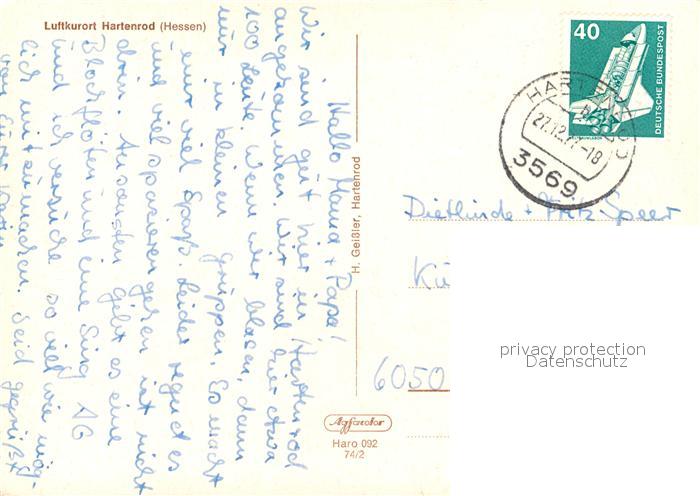 Luftkurort Hartenrod (Hessen)
Hallo Mama + Papa!
Wir sind gut hier in Hartenrod
angekommen. Wir sind hier etwa
100 Leute. Wenn wir blasen, dann
nur in kleinen Gruppen. Es macht
mir viel Spaß. Leider regnet es
und viel spazieren gehen ist nicht
drin. Ansonsten gibt es eine
Blockflöten und eine Sing AG
und ich versuche so viel wie mög-
lich mitzumachen. Seid gegrüßt
von Eurer
H. Geißler, Hartenrod
Agfacolor
Haro 092
74/2
40
DEUTSCHE BUNDESPOST
HARTENROD
27.12.77-18
3569
Dietlinde + Fritz Speer
Kü
6050
privacy protection
Datenschutz